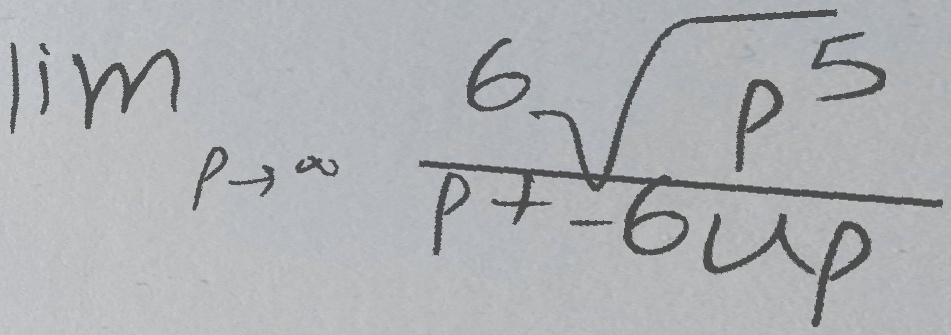 \lim_{p \to \infty} \frac{\sqrt[6]{p^5}}{p + -6up}